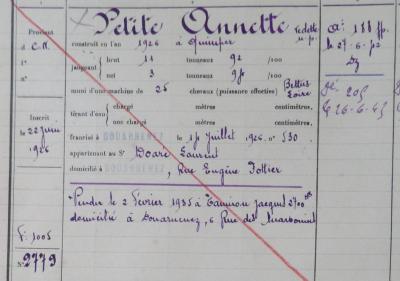 Petite Annette vedette m.p.
Provient
d C.N.
1°
n°
Inscrit
le 22 juin
1926
F° 1005
N° 2779
construit en l'an 1926 à Quimper
jaugeant
brut 11 tonneaux 92 /100
net 3 tonneaux 94 /100
muni d'une machine de 25 chevaux (puissance effective) Ballus
Loire
tirant d'eau
chargé mètres centimètres,
une chargé mètres centimètres,
DOUARNENEZ
francisé à le 14 Juillet 1926 n° 530
appartenant au Sr Doaré Laurent
DOUARNENEZ
domicilié à , Rue Eugène Pottier
Vendu le 2 Février 1935 à Jacques 2700
domicilié à Douarnenez, 6 Rue des
le 27-6-42
26-6-45